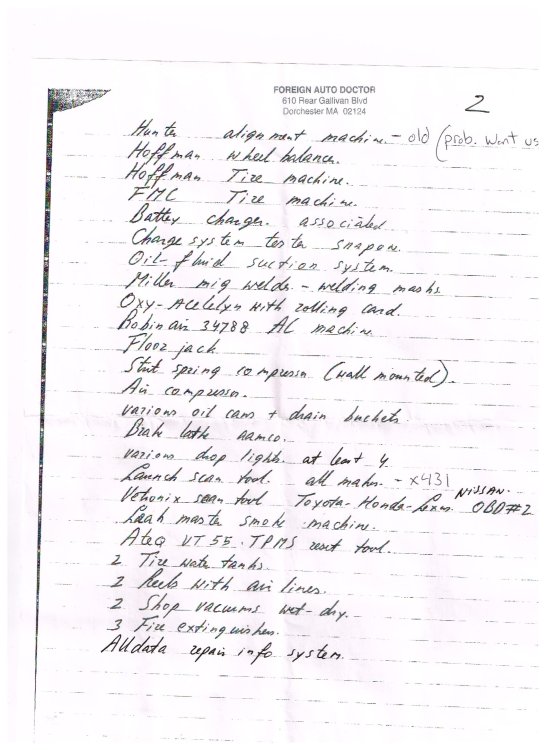 FOREIGN AUTO DOCTOR
610 Rear Gallivan Blvd
Dorchester MA 02124
2
Hunter alignment machine. - old (prob. wont us
Hoffman wheel balancer.
Hoffman Tire machine.
FMC Tire machine.
Battery charger. associated
Charge system tester snapone.
Oil-fluid suction system.
Miller mig welder - welding masks.
Oxy-Acetelyn with rolling card.
Robinair 34788 AC machine.
Floor jack
Strut spring compressor (wall mounted).
Air compressor.
various oil cans + drain buckets
Brake lathe amco.
various drop lights at least 4.
Launch scan tool. all makes. - x431
Vetronix scan tool Toyota-Honda-Lexus NISSAN- OBD#2
Leak master smoke machine.
Ateq VT 55. TPMS reset tool.
2 Tire water tanks.
2 Reels with air lines.
2 Shop vacuums wet-dry.
3 Fire extinguishers.
Alldata repair info system.